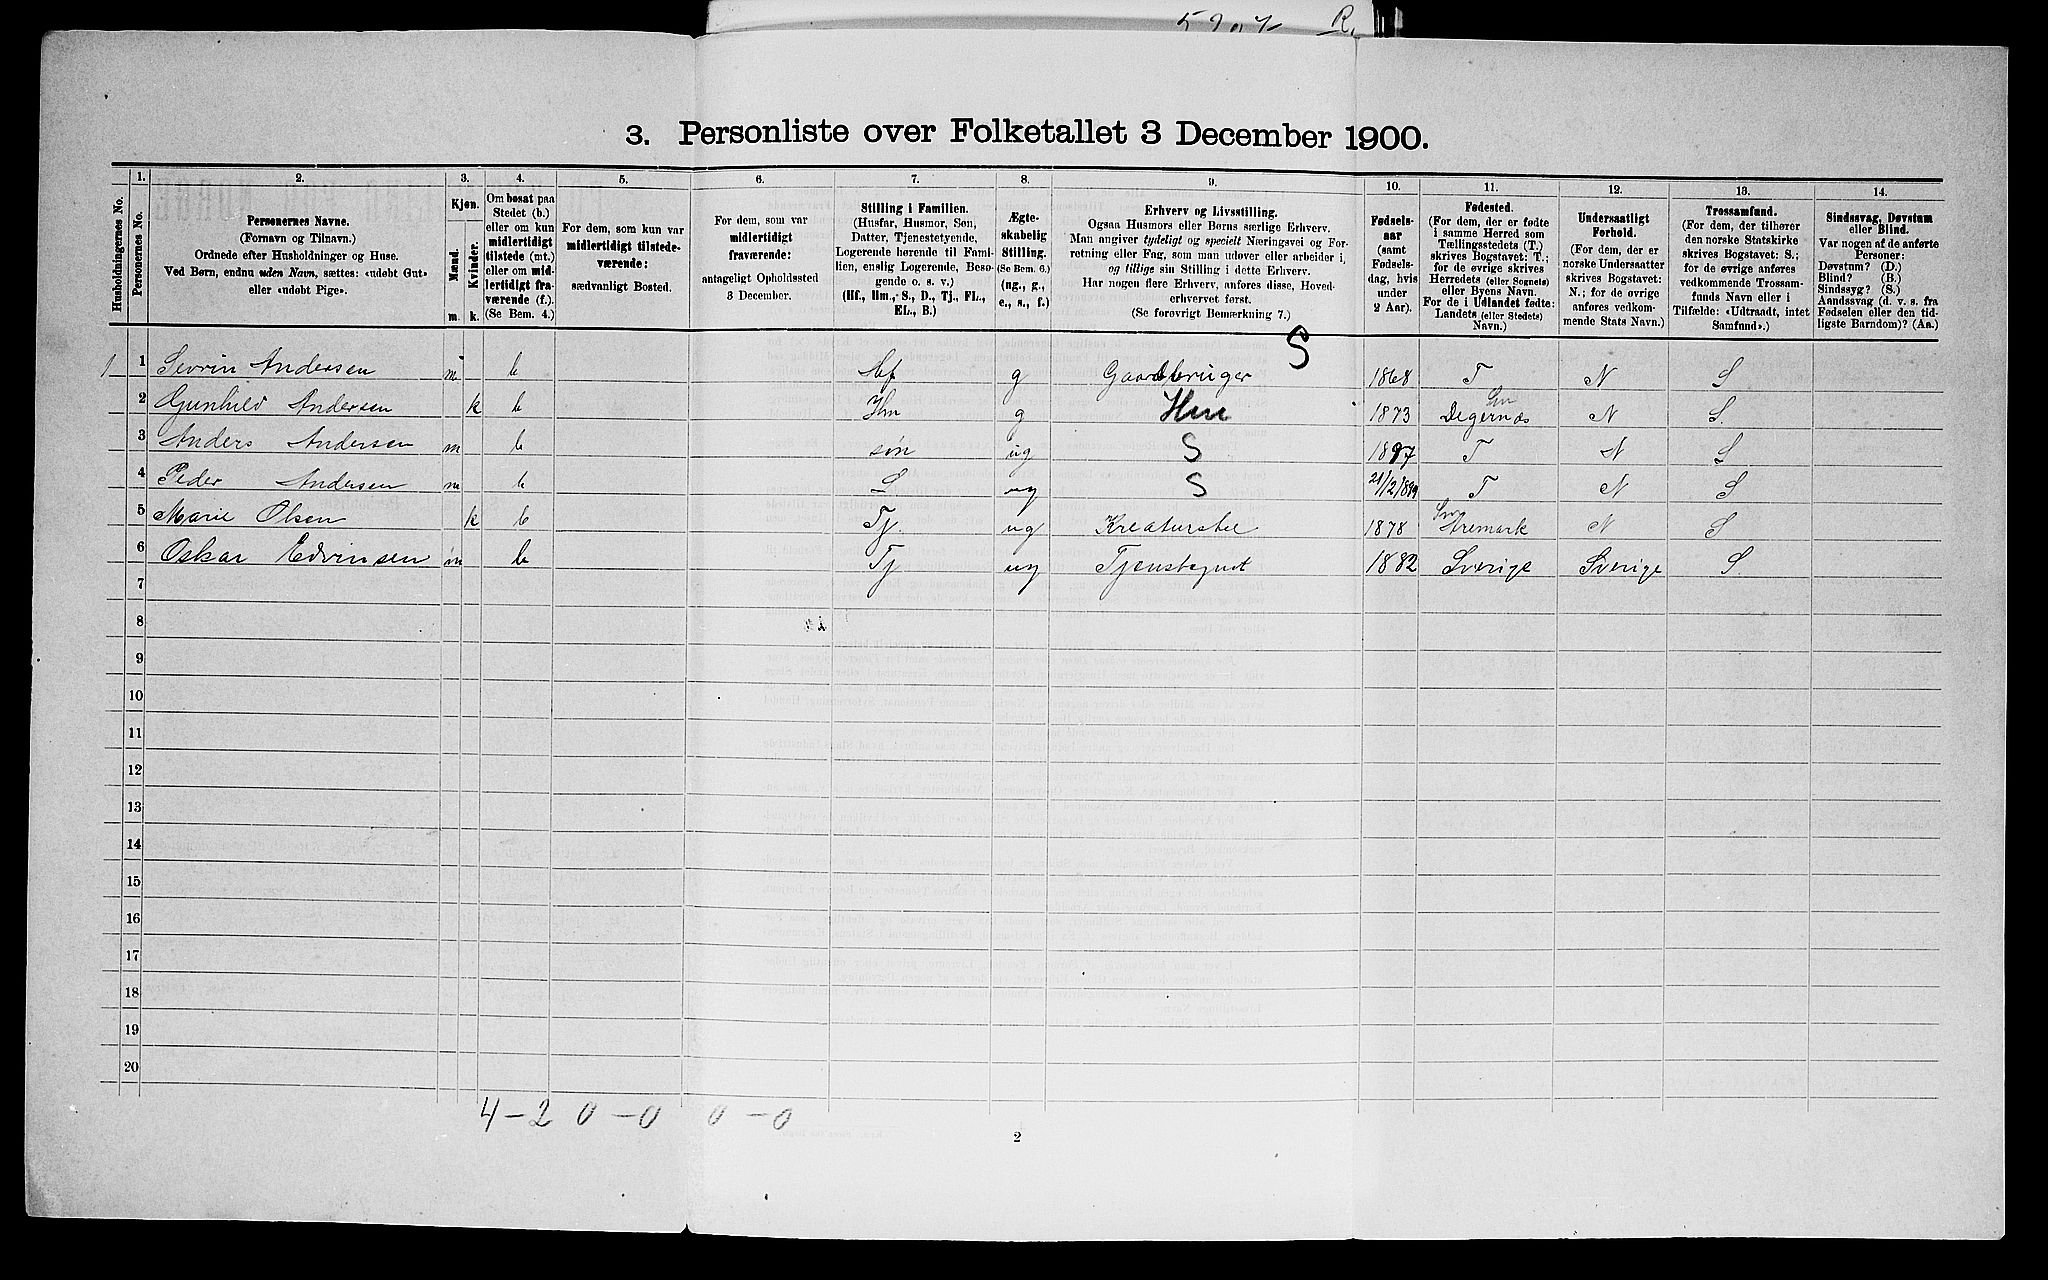 3. Personliste over Folketallet 3 December 1900.
1. 2. 3. 4. 5. 6. 7. 8. 9. 10. 11. 12. 13. 14.
Husholdningernes No.
Personernes No.
Personernes Navne.
(Fornavn og Tilnavn.)
Ordnede efter Husholdninger og Huse.
Ved Børn, endnu uden Navn, sættes: «udøbt Gut»
eller «udøbt Pige».
Kjøn.
Mænd.
Kvinder.
m. k.
Om bosat paa
Stedet (b.)
eller om kun
midlertidigt
tilstede (mt.)
eller om mid-
lertidigt fra-
værende (f.).
(Se Bem. 4.)
For dem, som kun var
midlertidigt tilstede-
værende:
sædvanligt Bosted.
For dem, som var
midlertidigt
fraværende:
antageligt Opholdssted
3 December.
Stilling i Familien.
(Husfar, Husmor, Søn,
Datter, Tjenestetyende,
Logerende hørende til Fami-
lien, enslig Logerende, Besø-
gende o. s. v.)
(Hf., Hm., S., D., Tj., FL.,
EL., B.)
Ægte-
skabelig
Stilling.
(Se Bem. 6.)
(ug., g.,
e., s., f.)
Erhverv og Livsstilling.
Ogsaa Husmors eller Børns særlige Erhverv.
Man angiver tydeligt og specielt Næringsvei og For-
retning eller Fag, som man udøver eller arbeider i,
og tillige sin Stilling i dette Erhverv.
Har nogen flere Erhverv, anføres disse, Hoved-
erhvervet først.
(Se forøvrigt Bemærkning 7.)
Fødsels-
aar
(samt
Fødsels-
dag, hvis
under
2 Aar).
Fødested.
(For dem, der er fødte
i samme Herred som
Tællingsstedets (T.)
skrives Bogstavet: T.;
for de øvrige skrives
Herredets (eller Sognets)
eller Byens Navn.
For de i Udlandet fødte:
Landets (eller Stedets)
Navn.)
Undersaatligt
Forhold.
(For dem, der er
norske Undersaatter
skrives Bogstavet:
N.; for de øvrige
anføres vedkom-
mende Stats Navn.)
Trossamfund.
(For dem, der tilhører
den norske Statskirke
skrives Bogstavet: S.;
for de øvrige anføres
vedkommende Trossam-
funds Navn eller i
Tilfælde: «Udtraadt, intet
Samfund».)
Sindssvag, Døvstum
eller Blind.
Var nogen af de anførte
Personer:
Døvstum? (D.)
Blind? (B.)
Sindssyg? (S.)
Aandssvag (d. v. s. fra
Fødselen eller den tid-
ligste Barndom)? (Aa.)
S
1 1 Sevrin Andersen m b Hf g Gaardbruger 1868 T N S
2 Gunhild Andersen k b Hm g Hm 1873 Degernæs N S.
3 Anders Andersen m b søn ug S 1897 T N S
4 Peder Andersen m b S ug S 21/2 1899 T N S
5 Marie Olsen k b Tj. ug Kreaturstel 1878 Aremark N S
6 Oskar Edvinsen m b Tj ug Tjenstegut 1882 Sverige Sverige S.
7
8
9
10
11
12
13
14
15
16
17
18
19
20
4 – 2 0 – 0 0 – 0
2